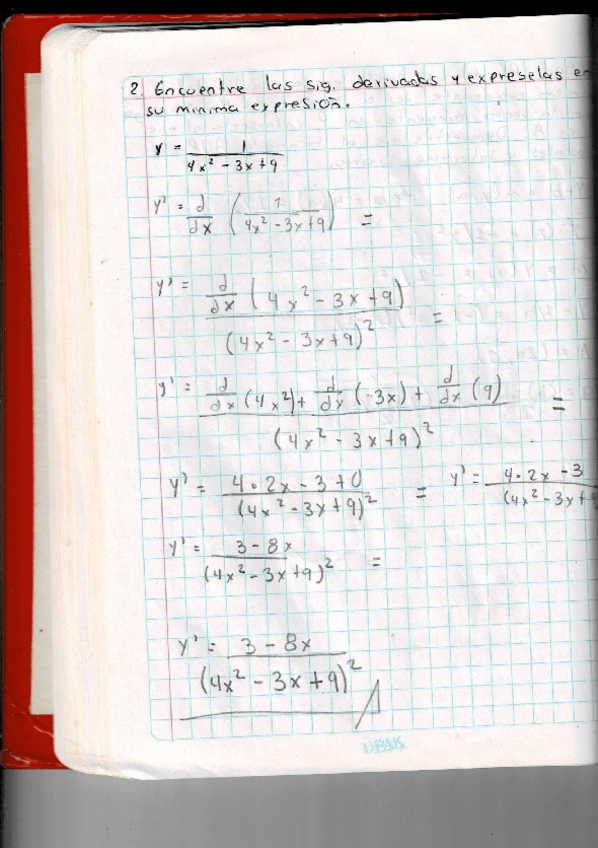 2. Encuentre las sig. derivadas y expreselas en
su minima expresión.
y = 1 / 4x² - 3x + 9
y' = d/dx (1 / 4x² - 3x + 9) =
y' = d/dx (4x² - 3x + 9) / (4x² - 3x + 9)² =
y' = d/dx (4x²) + d/dx (-3x) + d/dx (9) / (4x² - 3x + 9)² =
y' = 4·2x - 3 + 0 / (4x² - 3x + 9)² = y' = 4·2x - 3 / (4x² - 3x + 9
y' = 3 - 8x / (4x² - 3x + 9)² =
y' = 3 - 8x / (4x² - 3x + 9)²